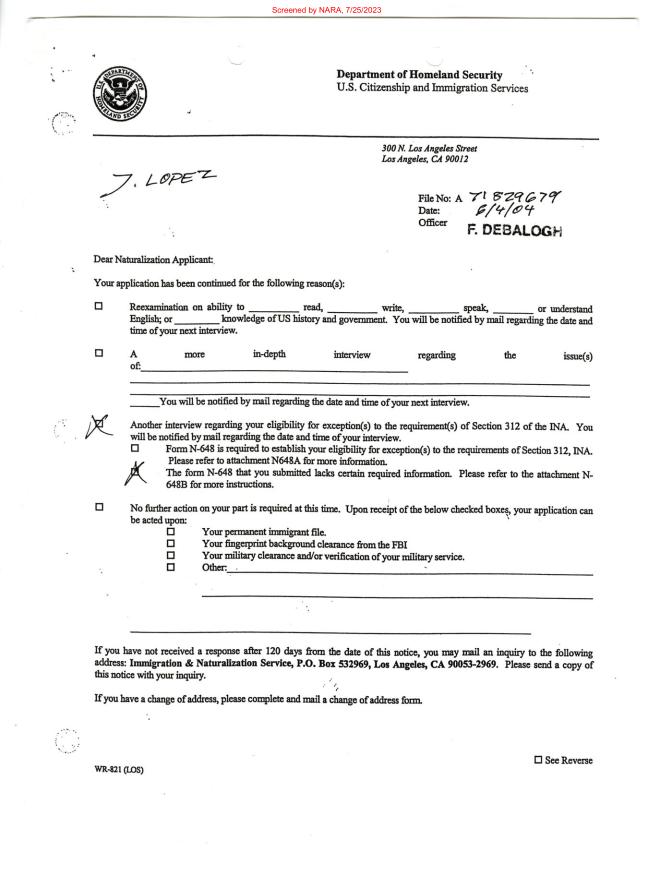 Screened by NARA, 7/25/2023
U.S. DEPARTMENT OF HOMELAND SECURITY
Department of Homeland Security
U.S. Citizenship and Immigration Services
300 N. Los Angeles Street
Los Angeles, CA 90012
J. LOPEZ
File No: A 71 829679
Date: 6/4/04
Officer F. DEBALOGH
Dear Naturalization Applicant:
Your application has been continued for the following reason(s):
☐ Reexamination on ability to ________ read, ________ write, ________ speak, ________ or understand
English; or ________ knowledge of US history and government. You will be notified by mail regarding the date and
time of your next interview.
☐ A more in-depth interview regarding the issue(s)
of:________
________You will be notified by mail regarding the date and time of your next interview.
☒ Another interview regarding your eligibility for exception(s) to the requirement(s) of Section 312 of the INA. You
will be notified by mail regarding the date and time of your interview.
☐ Form N-648 is required to establish your eligibility for exception(s) to the requirements of Section 312, INA.
Please refer to attachment N648A for more information.
☒ The form N-648 that you submitted lacks certain required information. Please refer to the attachment N-
648B for more instructions.
☐ No further action on your part is required at this time. Upon receipt of the below checked boxes, your application can
be acted upon:
☐ Your permanent immigrant file.
☐ Your fingerprint background clearance from the FBI
☐ Your military clearance and/or verification of your military service.
☐ Other:________
If you have not received a response after 120 days from the date of this notice, you may mail an inquiry to the following
address: Immigration & Naturalization Service, P.O. Box 532969, Los Angeles, CA 90053-2969. Please send a copy of
this notice with your inquiry.
If you have a change of address, please complete and mail a change of address form.
☐ See Reverse
WR-821 (LOS)